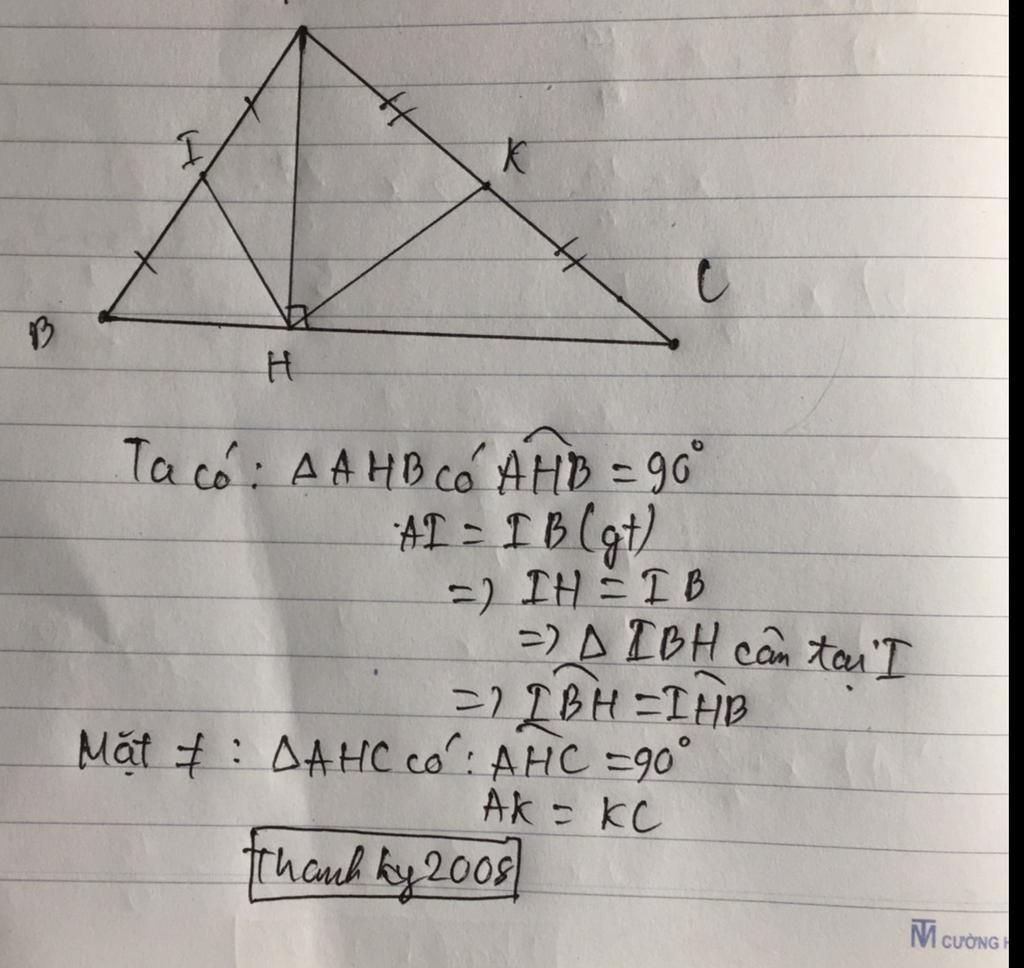 I
K
C
B
H
Ta có: Δ AHB có AHB = 90°
AI = IB (gt)
=> IH = IB
=> Δ IBH cân tại I
=> IBH = IHB
Mặt ≠: ΔAHC có: AHC = 90°
AK = KC
thanhky2008
CƯỜNG